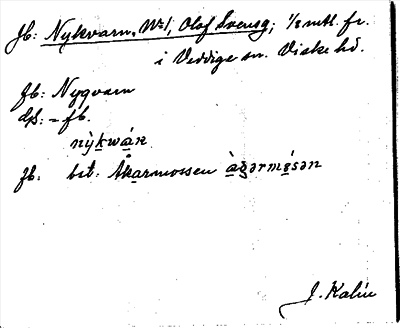 fb: Nykvarn, № 1, Olof Svensg; 1/2 mtl. fr.
i Veddige sn. Viske hd.
fb: Nyqvarn
ds: = fb.
nỳkwáṇ
fb. bet: Åkarmossen àgərmósən
J. Kalén